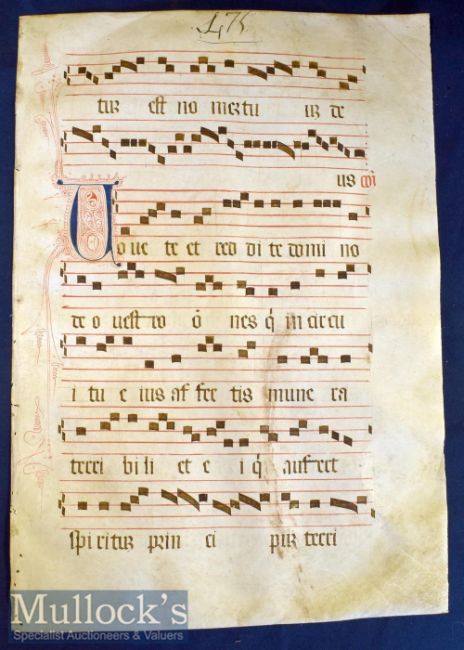 L 75
tuz est no meztu uz de
us cōi
Uo ue te et red di te domi no
de o uestro ō nes q̄ in cir cu
i tu e ius af fer tis mune ra
terri bi li et e i q̄ aufert
spi rituz prin ci puz terri
Mullock's
Specialist Auctioneers & Valuers